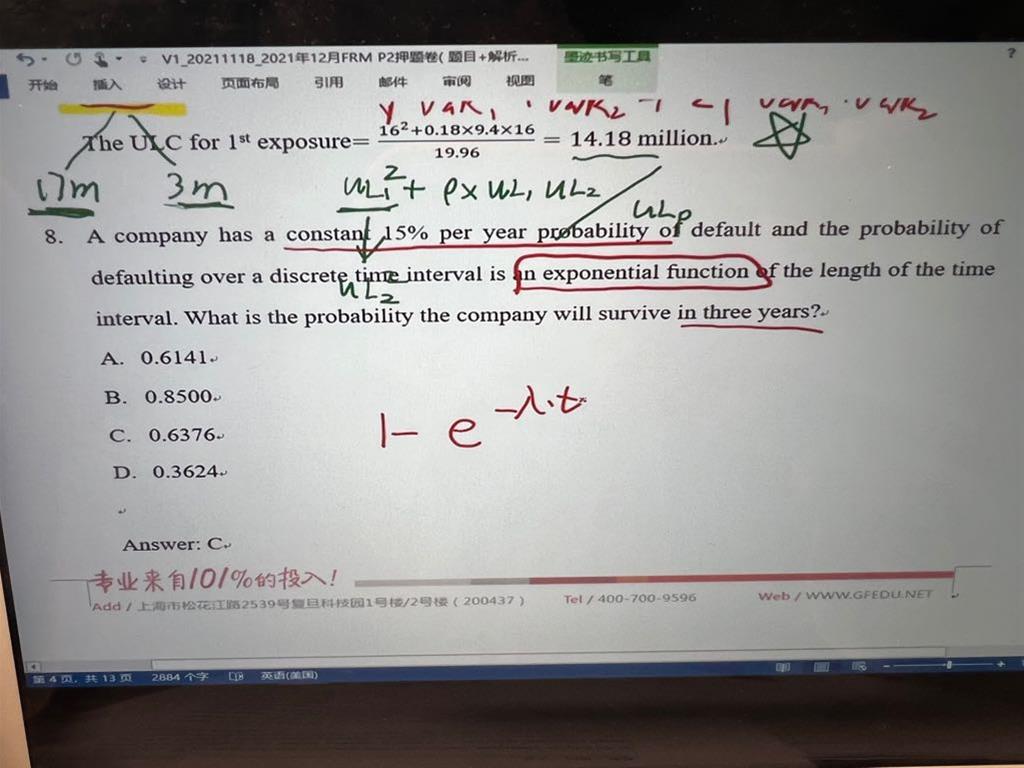 V1_20211118_2021年12月FRM P2押题卷( 题目+解析...
墨迹书写工具
?
开始 插入 设计 页面布局 引用 邮件 审阅 视图 笔
The ULC for 1st exposure= 16²+0.18×9.4×16 / 19.96 = 14.18 million.
17m 3m UL₁² + ρ x UL₁ UL₂
ULp
8. A company has a constant 15% per year probability of default and the probability of
defaulting over a discrete time interval is an exponential function of the length of the time
UL₂
interval. What is the probability the company will survive in three years?
A. 0.6141
B. 0.8500
C. 0.6376
D. 0.3624
1- e^-λ·t
Answer: C
专业来自101%的投入!
Add / 上海市松花江路2539号复旦科技园1号楼/2号楼 ( 200437 ) Tel / 400-700-9596 Web / WWW.GFEDU.NET
第 4 页, 共 13 页 2884 个字 英语(美国)